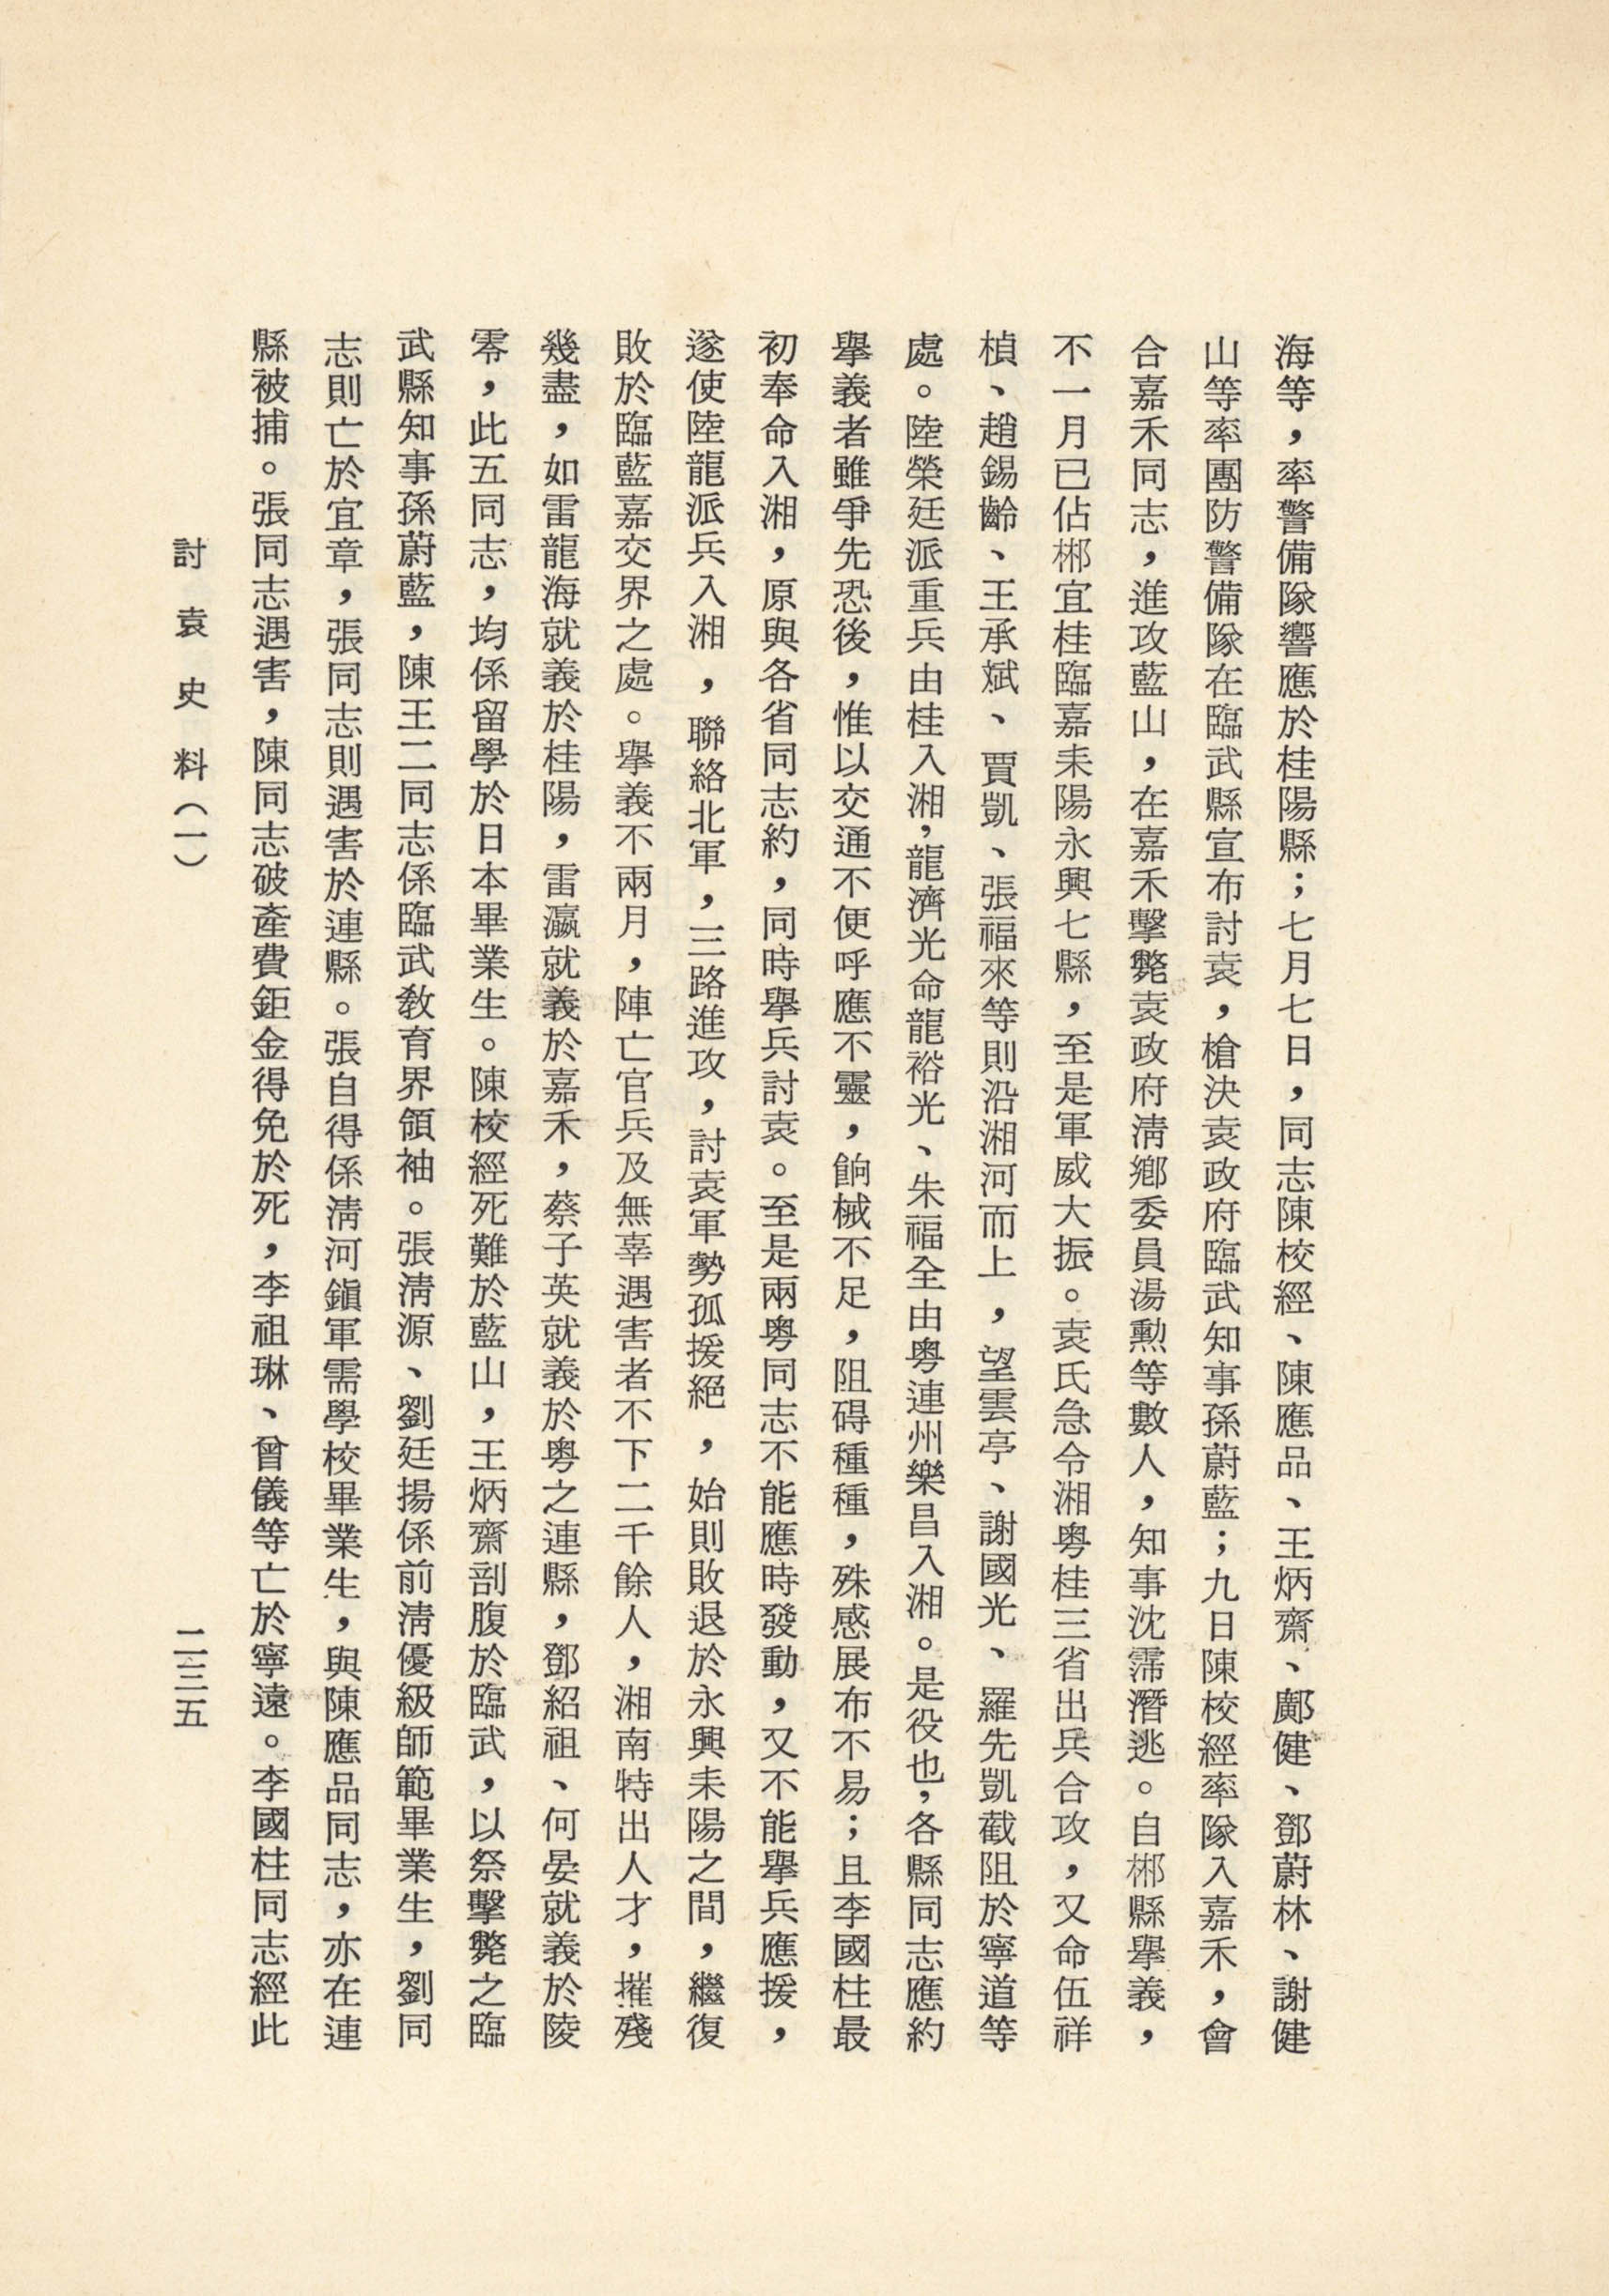 海等，率警備隊響應於桂陽縣；七月七日，同志陳校經、陳應品、王炳齋、鄺健、鄧蔚林、謝健
山等率團防警備隊在臨武縣宣布討袁，槍決袁政府臨武知事孫蔚藍；九日陳校經率隊入嘉禾，會
合嘉禾同志，進攻藍山，在嘉禾擊斃袁政府清鄉委員湯勲等數人，知事沈霈潛逃。自郴縣舉義，
不一月已佔郴宜桂臨嘉耒陽永興七縣，至是軍威大振。袁氏急令湘粵桂三省出兵合攻，又命伍祥
楨、趙錫齡、王承斌、賈凱、張福來等則沿湘河而上，望雲亭、謝國光、羅先凱截阻於寧道等
處。陸榮廷派重兵由桂入湘，龍濟光命龍裕光、朱福全由粵連州樂昌入湘。是役也，各縣同志應約
舉義者雖爭先恐後，惟以交通不便呼應不靈，餉械不足，阻碍種種，殊感展布不易；且李國柱最
初奉命入湘，原與各省同志約，同時舉兵討袁。至是兩粵同志不能應時發動，又不能舉兵應援，
遂使陸龍派兵入湘，聯絡北軍，三路進攻，討袁軍勢孤援絕，始則敗退於永興耒陽之間，繼復
敗於臨藍嘉交界之處。舉義不兩月，陣亡官兵及無辜遇害者不下二千餘人，湘南特出人才，摧殘
幾盡，如雷龍海就義於桂陽，雷瀛就義於嘉禾，蔡子英就義於粵之連縣，鄧紹祖、何晏就義於陵
零，此五同志，均係留學於日本畢業生。陳校經死難於藍山，王炳齋剖腹於臨武，以祭擊斃之臨
武縣知事孫蔚藍，陳王二同志係臨武教育界領袖。張清源、劉廷揚係前清優級師範畢業生，劉同
志則亡於宜章，張同志則遇害於連縣。張自得係清河鎮軍需學校畢業生，與陳應品同志，亦在連
縣被捕。張同志遇害，陳同志破產費鉅金得免於死，李祖琳、曾儀等亡於寧遠。李國柱同志經此
討袁史料（一）
二三五